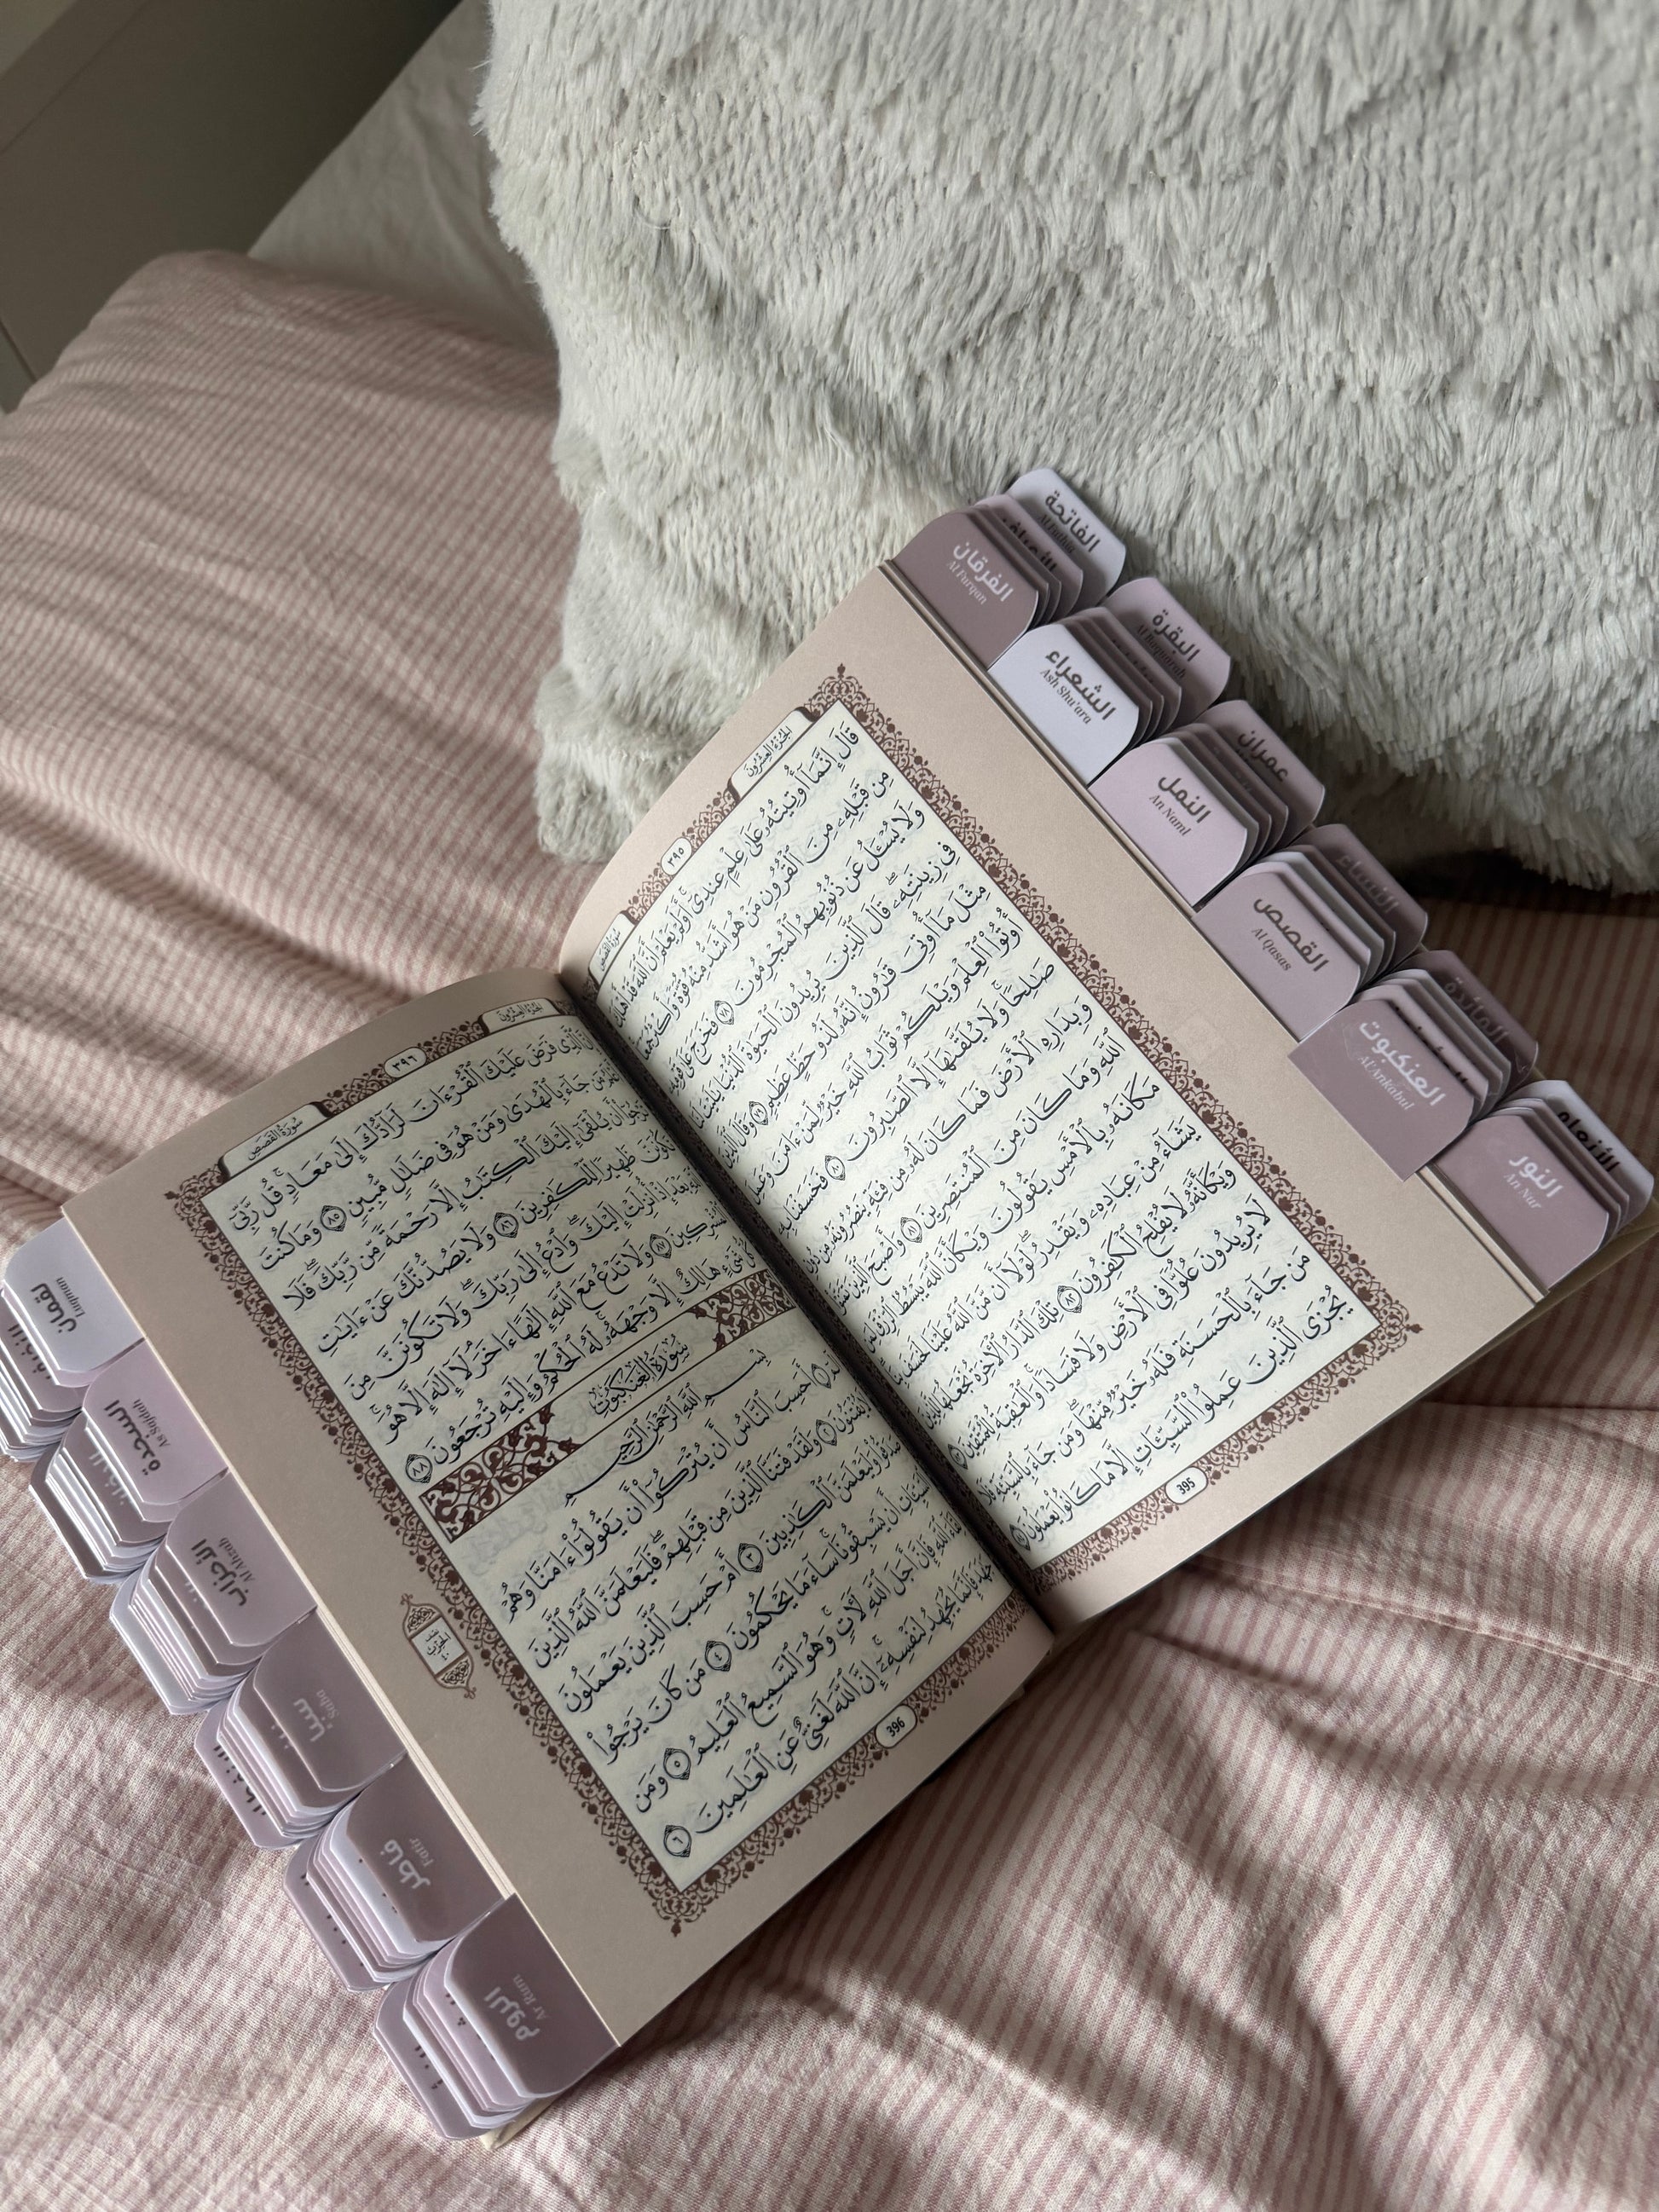 الجزء العشرون
٣٩٥
سورة القصص
قَالَ إِنَّمَآ أُوتِيتُهُۥ عَلَىٰ عِلْمٍ عِندِىٓ ۚ أَوَلَمْ يَعْلَمْ أَنَّ ٱللَّهَ قَدْ أَهْلَكَ
مِن قَبْلِهِۦ مِنَ ٱلْقُرُونِ مَنْ هُوَ أَشَدُّ مِنْهُ قُوَّةً وَأَكْثَرُ جَمْعًا ۚ
وَلَا يُسْـَٔلُ عَن ذُنُوبِهِمُ ٱلْمُجْرِمُونَ ٧٨ فَخَرَجَ عَلَىٰ قَوْمِهِۦ
فِى زِينَتِهِۦ ۖ قَالَ ٱلَّذِينَ يُرِيدُونَ ٱلْحَيَوٰةَ ٱلدُّنْيَا يَٰلَيْتَ لَنَا
مِثْلَ مَآ أُوتِىَ قَٰرُونُ إِنَّهُۥ لَذُو حَظٍّ عَظِيمٍ ٧٩ وَقَالَ ٱلَّذِينَ
أُوتُوا۟ ٱلْعِلْمَ وَيْلَكُمْ ثَوَابُ ٱللَّهِ خَيْرٌ لِّمَنْ ءَامَنَ وَعَمِلَ
صَٰلِحًا ۚ وَلَا يُلَقَّىٰهَآ إِلَّا ٱلصَّٰبِرُونَ ٨٠ فَخَسَفْنَا بِهِۦ
وَبِدَارِهِ ٱلْأَرْضَ فَمَا كَانَ لَهُۥ مِن فِئَةٍ يَنصُرُونَهُۥ مِن دُونِ
ٱللَّهِ وَمَا كَانَ مِنَ ٱلْمُنتَصِرِينَ ٨١ وَأَصْبَحَ ٱلَّذِينَ تَمَنَّوْا۟
مَكَانَهُۥ بِٱلْأَمْسِ يَقُولُونَ وَيْكَأَنَّ ٱللَّهَ يَبْسُطُ ٱلرِّزْقَ لِمَن
يَشَآءُ مِنْ عِبَادِهِۦ وَيَقْدِرُ ۖ لَوْلَآ أَن مَّنَّ ٱللَّهُ عَلَيْنَا لَخَسَفَ بِنَا ۖ
وَيْكَأَنَّهُۥ لَا يُفْلِحُ ٱلْكَٰفِرُونَ ٨٢ تِلْكَ ٱلدَّارُ ٱلْءَاخِرَةُ نَجْعَلُهَا لِلَّذِينَ
لَا يُرِيدُونَ عُلُوًّا فِى ٱلْأَرْضِ وَلَا فَسَادًا ۚ وَٱلْعَٰقِبَةُ لِلْمُتَّقِينَ ٨٣
مَن جَآءَ بِٱلْحَسَنَةِ فَلَهُۥ خَيْرٌ مِّنْهَا ۖ وَمَن جَآءَ بِٱلسَّيِّئَةِ فَلَا
يُجْزَى ٱلَّذِينَ عَمِلُوا۟ ٱلسَّيِّـَٔاتِ إِلَّا مَا كَانُوا۟ يَعْمَلُونَ ٨٤
395
الجزء العشرون
٣٩٦
سورة القصص
إِنَّ ٱلَّذِى فَرَضَ عَلَيْكَ ٱلْقُرْءَانَ لَرَآدُّكَ إِلَىٰ مَعَادٍ ۚ قُل رَّبِّىٓ
أَعْلَمُ مَن جَآءَ بِٱلْهُدَىٰ وَمَنْ هُوَ فِى ضَلَٰلٍ مُّبِينٍ ٨٥ وَمَا كُنتَ
تَرْجُوٓا۟ أَن يُلْقَىٰٓ إِلَيْكَ ٱلْكِتَٰبُ إِلَّا رَحْمَةً مِّن رَّبِّكَ ۖ فَلَا
تَكُونَنَّ ظَهِيرًا لِّلْكَٰفِرِينَ ٨٦ وَلَا يَصُدُّنَّكَ عَنْ ءَايَٰتِ
ٱللَّهِ بَعْدَ إِذْ أُنزِلَتْ إِلَيْكَ ۖ وَٱدْعُ إِلَىٰ رَبِّكَ ۖ وَلَا تَكُونَنَّ مِنَ
ٱلْمُشْرِكِينَ ٨٧ وَلَا تَدْعُ مَعَ ٱللَّهِ إِلَٰهًا ءَاخَرَ ۘ لَآ إِلَٰهَ إِلَّا هُوَ ۚ
كُلُّ شَىْءٍ هَالِكٌ إِلَّا وَجْهَهُۥ ۚ لَهُ ٱلْحُكْمُ وَإِلَيْهِ تُرْجَعُونَ ٨٨
سورة العنكبوت
بِسْمِ ٱللَّهِ ٱلرَّحْمَٰنِ ٱلرَّحِيمِ
الٓمٓ ١ أَحَسِبَ ٱلنَّاسُ أَن يُتْرَكُوٓا۟ أَن يَقُولُوٓا۟ ءَامَنَّا وَهُمْ
لَا يُفْتَنُونَ ٢ وَلَقَدْ فَتَنَّا ٱلَّذِينَ مِن قَبْلِهِمْ ۖ فَلَيَعْلَمَنَّ ٱللَّهُ ٱلَّذِينَ
صَدَقُوا۟ وَلَيَعْلَمَنَّ ٱلْكَٰذِبِينَ ٣ أَمْ حَسِبَ ٱلَّذِينَ يَعْمَلُونَ
ٱلسَّيِّـَٔاتِ أَن يَسْبِقُونَا ۚ سَآءَ مَا يَحْكُمُونَ ٤ مَن كَانَ يَرْجُوا۟
لِقَآءَ ٱللَّهِ فَإِنَّ أَجَلَ ٱللَّهِ لَءَاتٍ ۚ وَهُوَ ٱلسَّمِيعُ ٱلْعَلِيمُ ٥ وَمَن
جَٰهَدَ فَإِنَّمَا يُجَٰهِدُ لِنَفْسِهِۦٓ ۚ إِنَّ ٱللَّهَ لَغَنِىٌّ عَنِ ٱلْعَٰلَمِينَ ٦
396
الفاتحة
Al Fatiha
الفرقان
Al Furqan
البقرة
Al Baqarah
الشعراء
Ash Shu'ara
عمران
النمل
An Naml
النساء
القصص
Al Qasas
المائدة
العنكبوت
Al 'Ankabut
الأنعام
النور
An Nur
لقمان
Luqman
السجدة
As Sajdah
الأحزاب
Al Ahzab
سبأ
Saba
فاطر
Fatir
الروم
Ar Rum